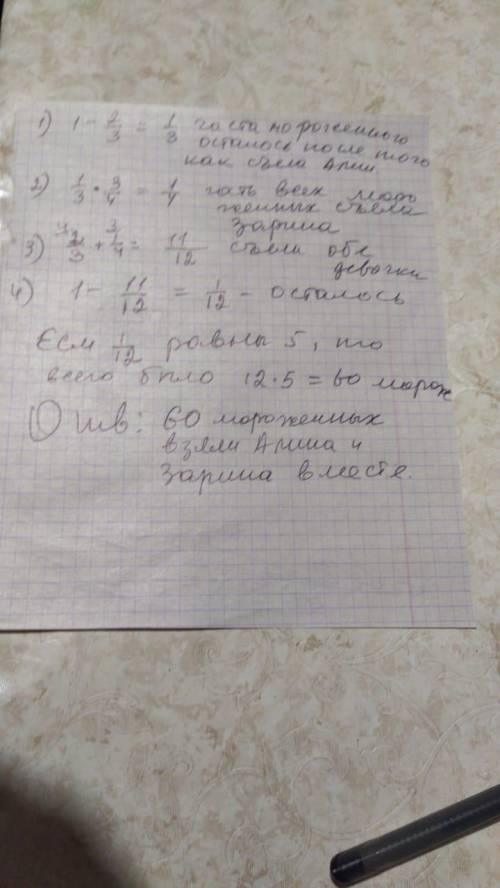 1) 1 - 2/3 = 1/3 часта мороженного
осталось после того
как съела Алии.
2) 1/3 · 3/4 = 1/4 чать всех моро
женных съела
Зарина
3) 2/3 + 1/4 = 11/12 съели обе
девочки
4) 1 - 11/12 = 1/12 - осталось
Если 1/12 равны 5, то
всего было 12·5 = 60 морож
Отв: 60 мороженных
взяли Алина и
Зарина вместе.